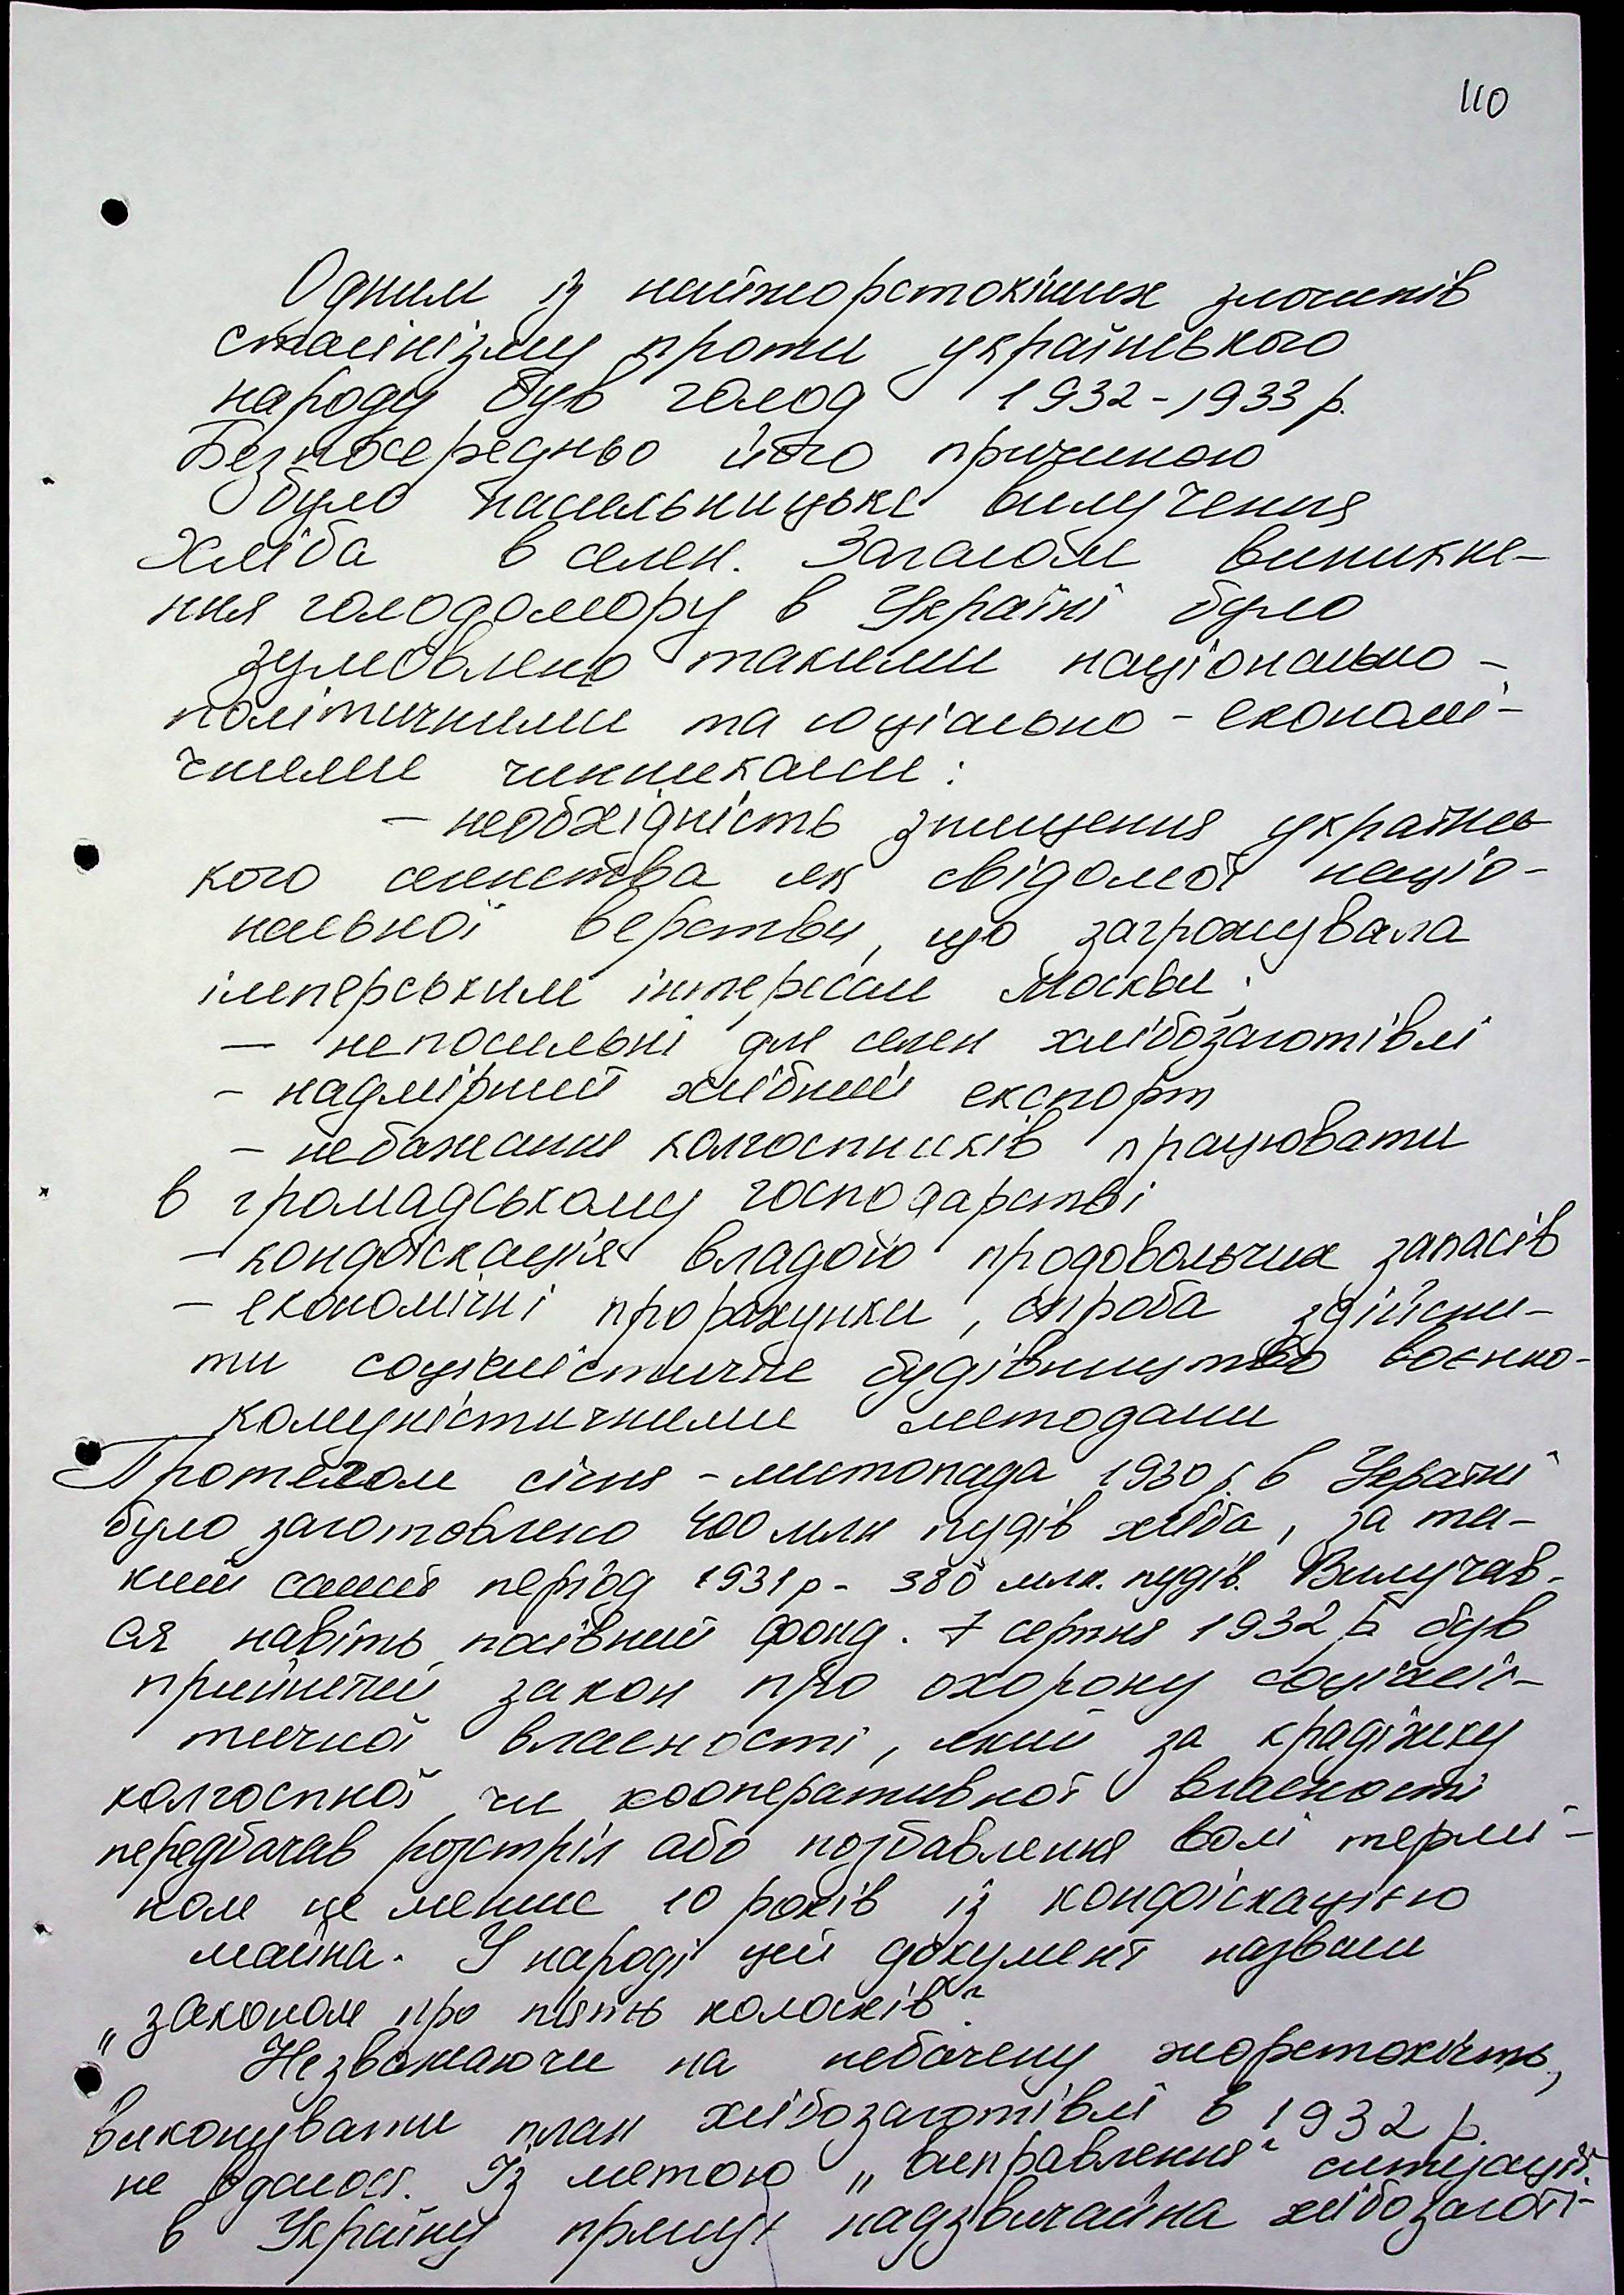 110
Одним із найжорстокіших злочинів
сталінізму проти українського
народу був голод 1932-1933 р.
Безпосередньо його причиною
було насильницьке вилучення
хліба в селян. Загалом виникне-
ння голодомору в Україні було
зумовлено такими національно-
політичними та соціально-економі-
чними чинниками:
- необхідність знищення українсь
кого селянства як свідомої націо-
нальної верстви, що загрожувала
імперським інтересам Москви;
- непосильні для селян хлібозаготівлі
- надмірний хлібний експорт
- небажання колгоспників працювати
в громадському господарстві
- конфіскація владою продовольчих запасів
- економічні прорахунки, спроба здійсни-
ти соціалістичне будівництво воєнно-
комуністичними методами
Протягом січня - листопада 1930 р. в Україні
було заготовлено 400 млн пудів хліба, за та-
кий самий період 1931 р - 380 млн. пудів. Вилучав-
ся навіть посівний фонд. 7 серпня 1932 р. був
прийнятий закон про охорону соціаліс-
тичної власності, який за крадіжку
колгоспної чи кооперативної власності
передбачав розстріл або позбавлення волі термі-
ном не менше 10 років із конфіскацією
майна. У народі цей документ назвали
„законом про п'ять колосків".
Незважаючи на небачену жорстокість,
виконувати план хлібозаготівлі в 1932 р.
не вдалося. Із метою „виправлення" ситуації
в Україну прямує надзвичайна хлібозаготі-